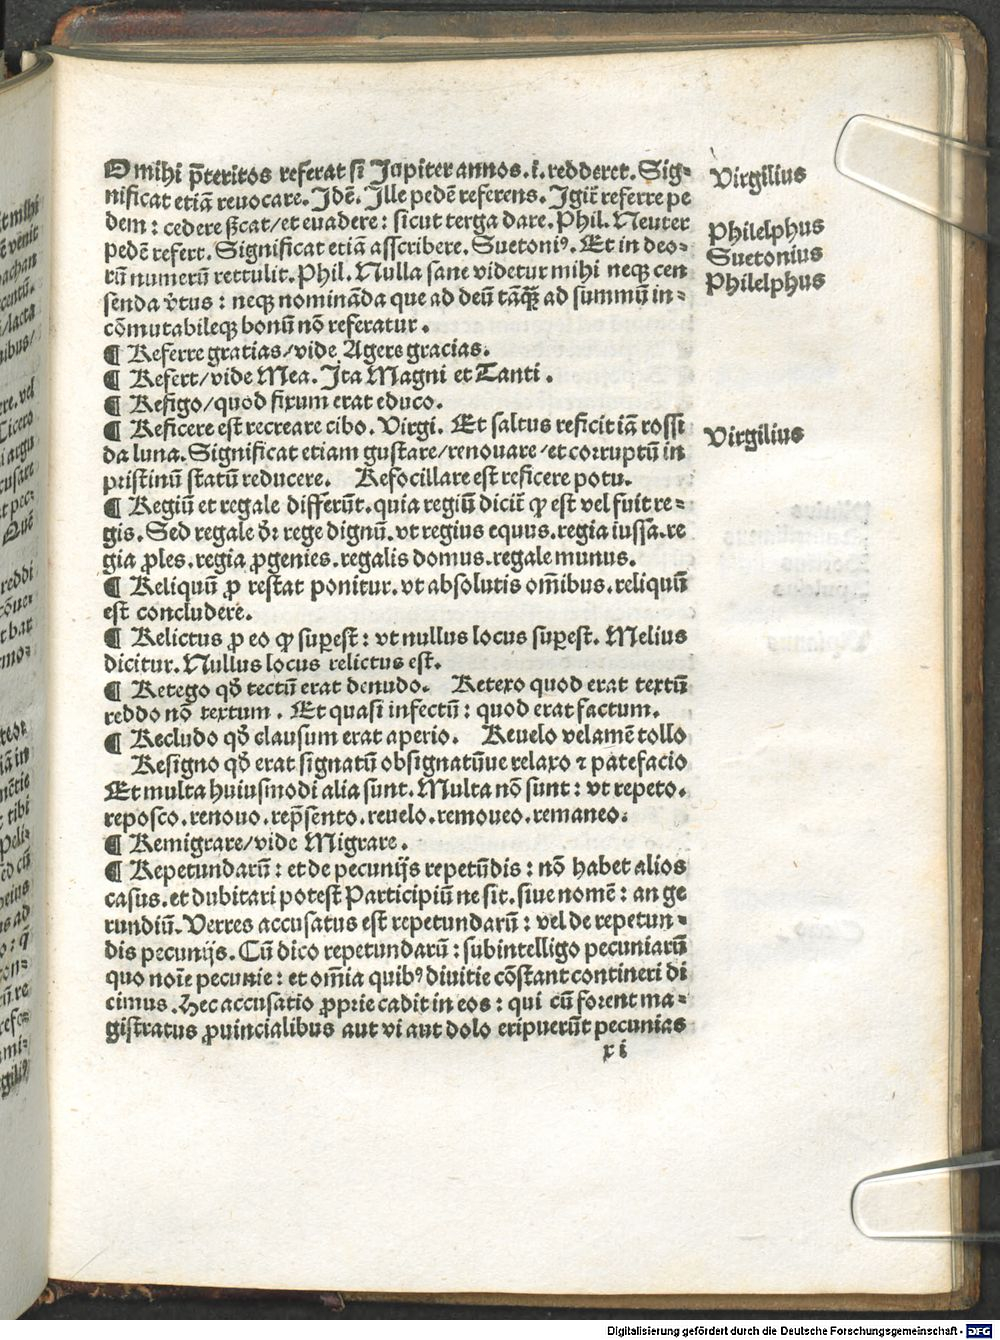 O mihi p̄teritos referat si Jupiter annos. i. redderet. Sig-
nificat etiā reuocare. Idē. Ille pedē referens. Igit᷑ referre pe
dem: cedere ſẜcat/et euadere: sicut terga dare. Phil. Neuter
pedē refert. Significat etiā asscribere. Suetoniꝰ. Et in deo-
rū numerū rettulit. Phil. Nulla sane videtur mihi neqꝫ cen
senda v̄tus: neqꝫ nomināda que ad deū tāqꝫ̄ ad summū in-
cōmutabileqꝫ bonū nō referatur.
¶ Referre gratias/vide Agere gracias.
¶ Refert/vide Mea. Ita Magni et Tanti.
¶ Refigo/quod fixum erat educo.
¶ Reficere est recreare cibo. Virgi. Et saltus reficit iā rossi
da luna. Significat etiam gustare/renouare/et corruptū in
pristinū statū reducere. Refocillare est reficere potu.
¶ Regiū et regale differūt. quia regiū dicit᷑ ꝙ est vel fuit re-
gis. Sed regale dr̄: rege dignū. vt regius equus. regia iussa. re
gia ꝓles. regia ꝓgenies. regalis domus. regale munus.
¶ Reliquū ꝓ restat ponitur. vt absolutis om̄ibus. reliquū
est concludere.
¶ Relictus ꝓ eo ꝙ suꝑest: vt nullus locus suꝑest. Melius
dicitur. Nullus locus relictus est.
¶ Retego qḋ tectū erat denudo. Retexo quod erat textū
reddo nō textum. Et quasi infectū: quod erat factum.
¶ Recludo qḋ clausum erat aperio. Reuelo velamē tollo
Resigno qḋ erat signatū obsignatūue relaxo ⁊ patefacio
Et multa huiusmodi alia sunt. Multa nō sunt: vt repeto.
reposco. renouo. rep̄sento. reuelo. remoueo. remaneo.
¶ Remigrare/vide Migrare.
¶ Repetundarū: et de pecunijs repetūdis: nō habet alios
casus. et dubitari potest Participiū ne sit. siue nomē: an ge
rundiū. Verres accusatus est repetundarū: vel de repetun-
dis pecunijs. Cū dico repetundarū: subintelligo pecuniarū
quo noīe pecunie: et om̄ia quibꝰ diuitie cōstant contineri di
cimus. Hec accusatio ꝓprie cadit in eos: qui cū forent ma-
gistratus ꝓuincialibus aut vi aut dolo eripuerūt pecunias
x i
Virgilius
Philelphus
Suetonius
Philelphus
Virgilius
Digitalisierung gefördert durch die Deutsche Forschungsgemeinschaft - DFG